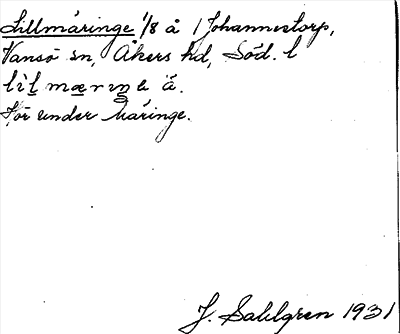 Lillmäringe 1/8 å Johannestorp,
Vansö sn, Åkers hd, Söd. l
lìl̠mær̠iŋe ǟ.
Hör under Märinge.
J. Sahlgren 1931